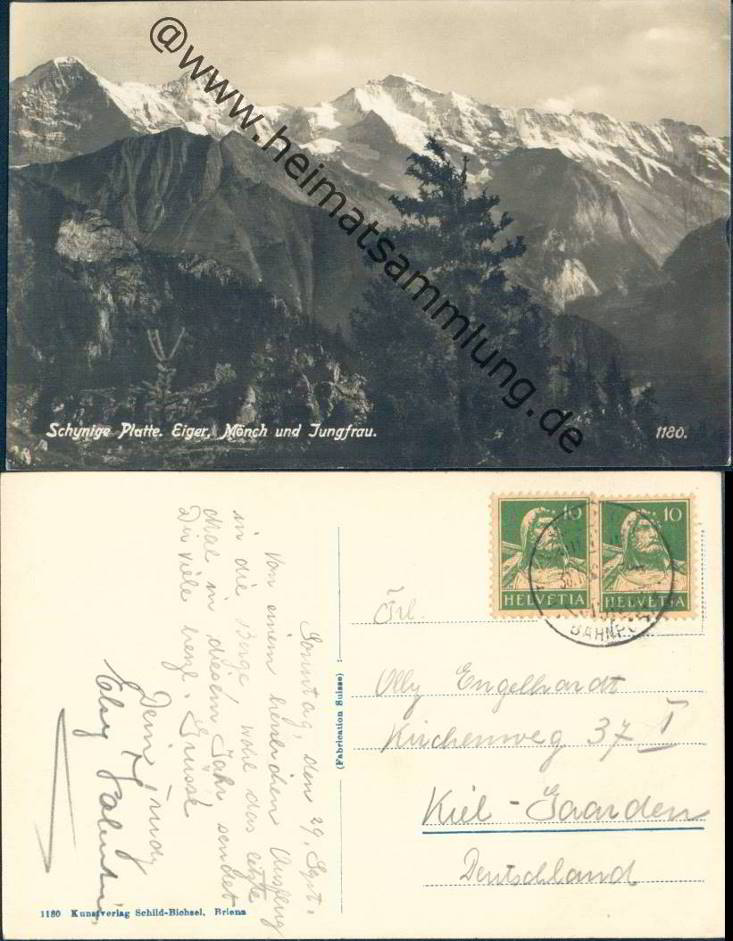 @www.heimatsammlung.de
Schynige Platte. Eiger, Mönch und Jungfrau.
1180.
Sonntag, den 29. Sept.
Von einem herrlichen Ausflug
in die Berge, wohl das letzte
Mal in diesem Jahr, sendet
Dir viele herzl. Grüsse
Dein
(Fabrication Suisse)
10
HELVETIA
10
HELVETIA
BAHNPO
Frl.
Olly Engelhardt
Kirchenweg 37 I
Kiel-Gaarden
Deutschland
1180 Kunstverlag Schild-Bichsel, Brienz